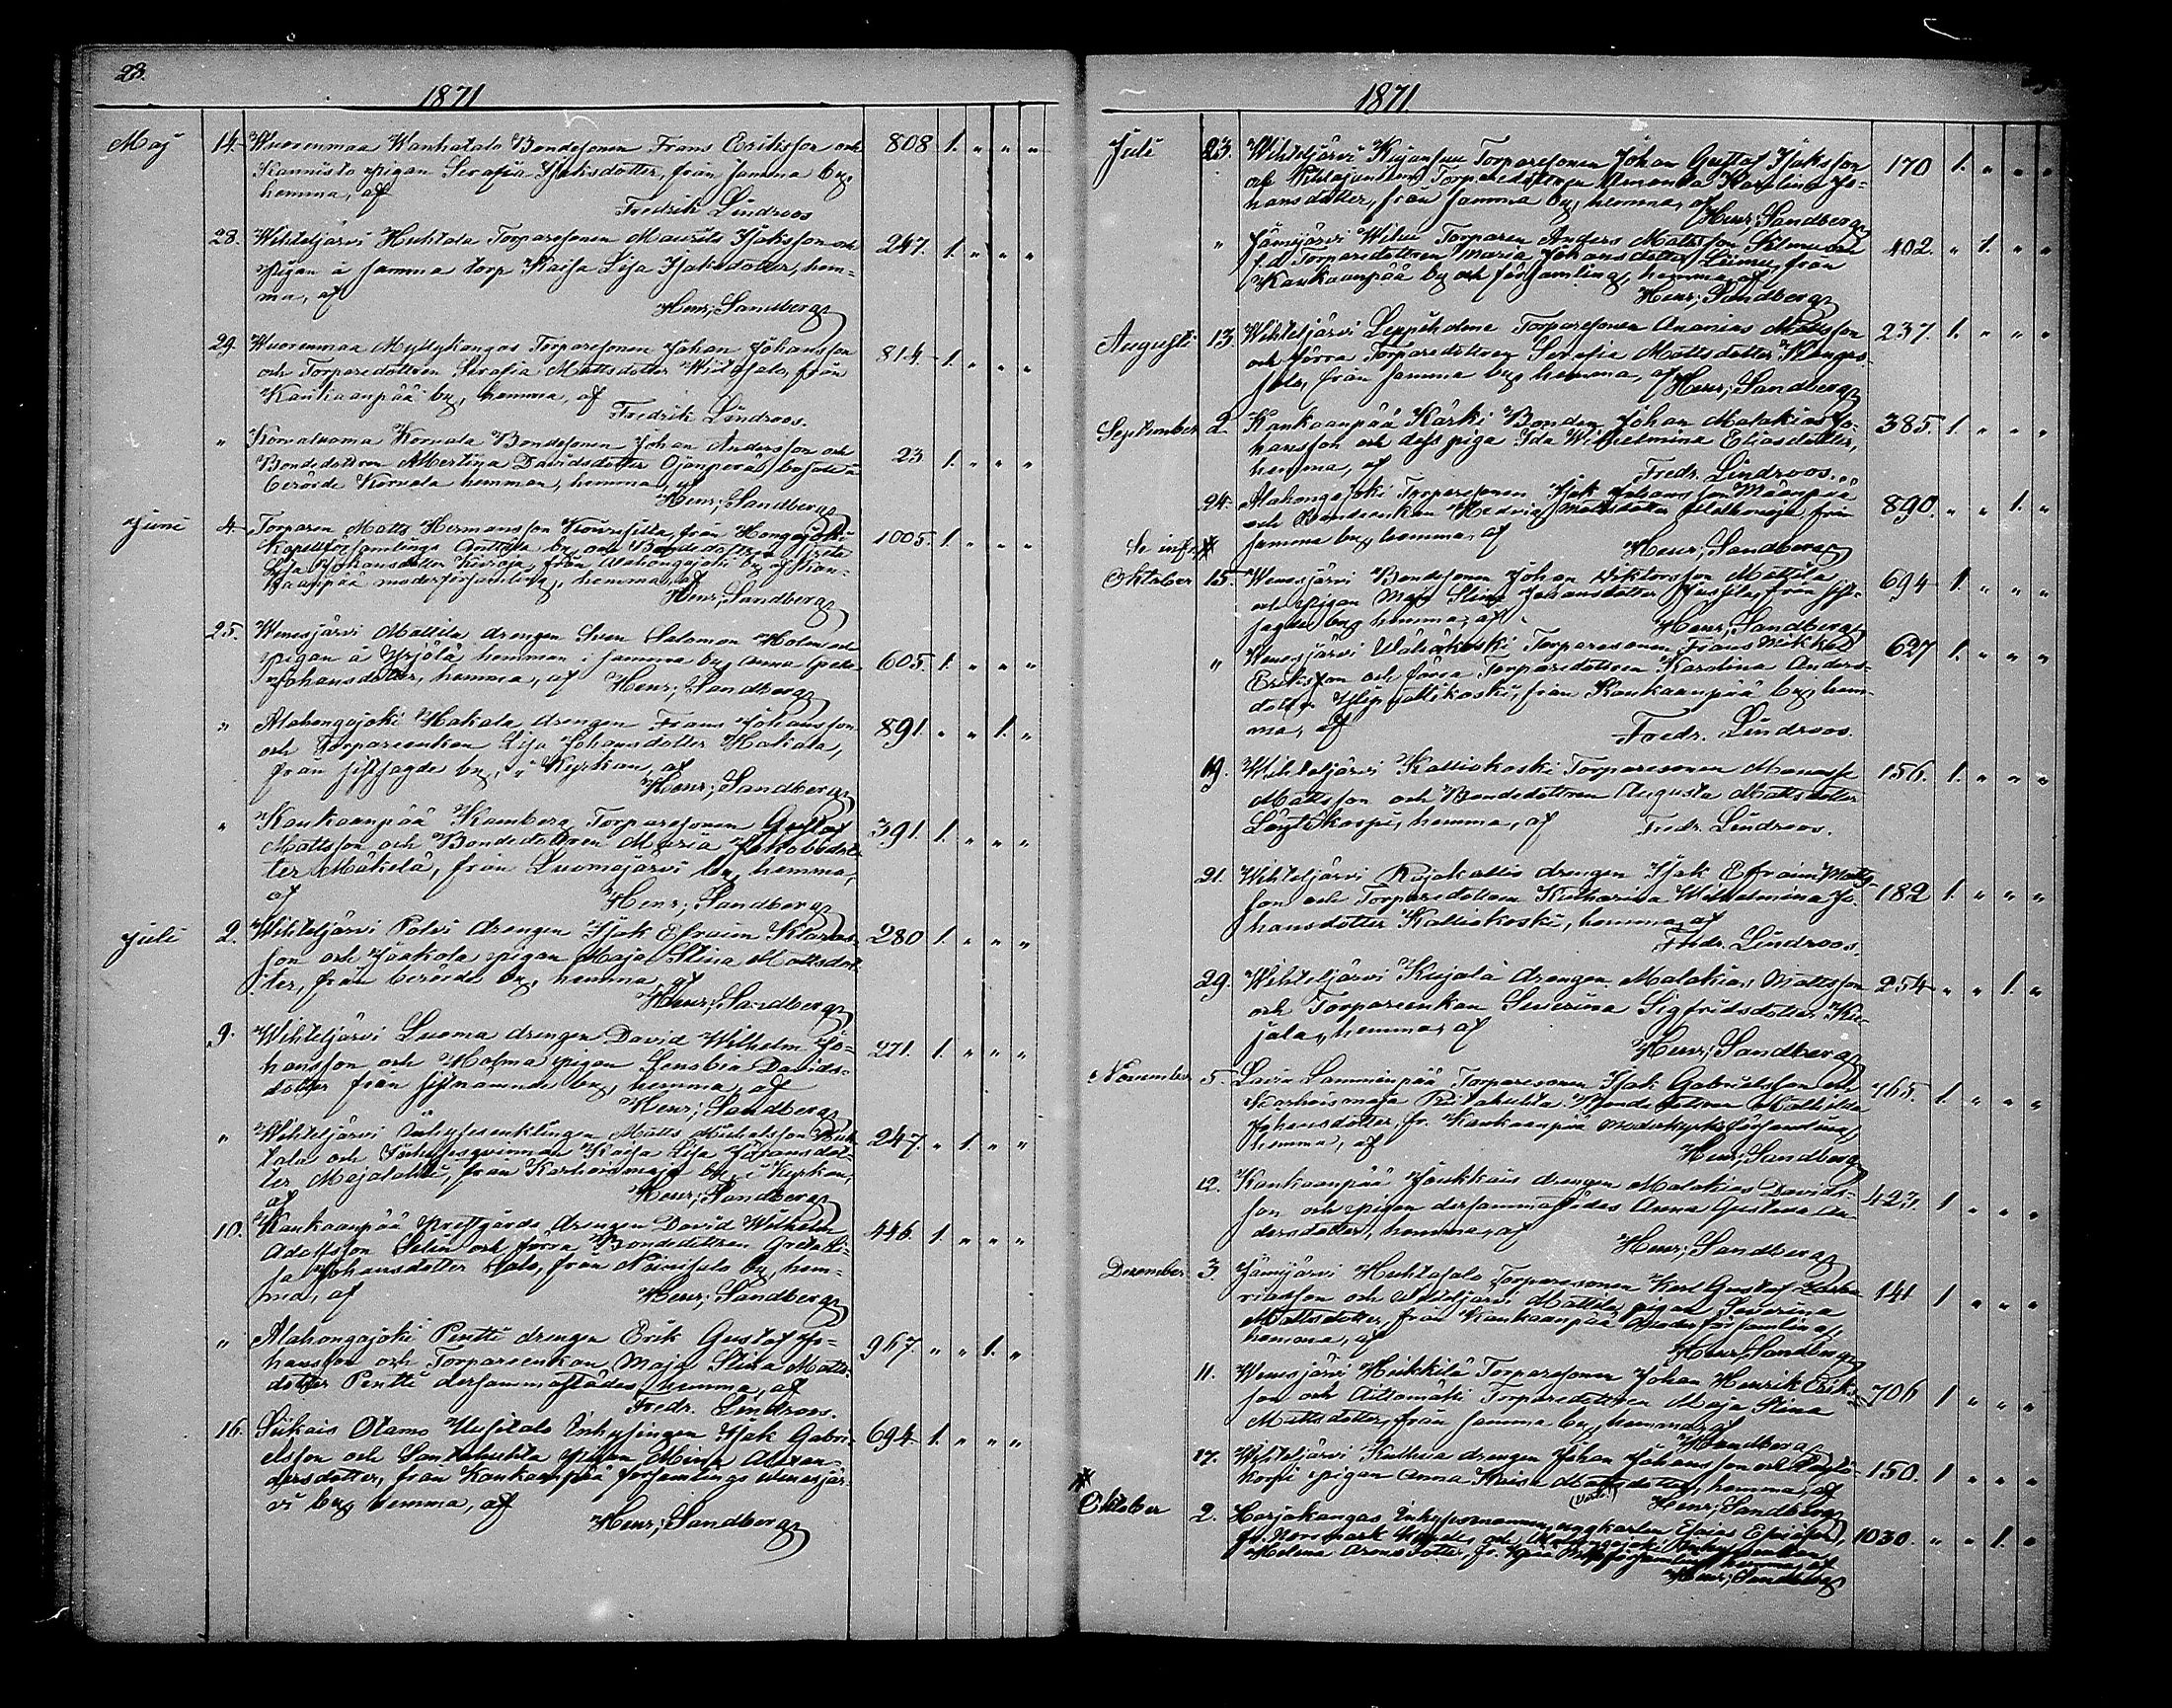 23.
1871
Maj 14. Wuorenmaa Kankatalo Bondesonen Frans Eriksson och 808 1. " " "
Kannisto pigan Serafia Isaksdotter, från samma by,
hemma, af
Fredrik Lindroos
28. Wihteljärvi Huhtala Torparesonen Maurits Isaksson och 247. 1. " " "
pigan å samma torp Kaisa Lisa Isaksdotter, hem-
ma, af
Henr; Sandberg
29. Wuorenmaa Myllykangas Torparesonen Johan Johansson 814 1. " " "
och Torparedottren Serafia Mattsdotter Wiitasalo, från
Kankaanpää by, hemma, af
Fredrik Lindroos.
" Korvaluoma Korvala Bondesonen Johan Andersson och 23 1. " " "
Bondedottren Albertina Davidsdotter Ojanperä, boende å
berörde Korvala hemman, hemma, af
Henr; Sandberg
Juni 4. Torparen Matts Hermansson från Hongojoki 1005. 1. " " "
Kapellförsamlings by och Bondedottren Greta
Lisa Johansdotter från Alahongajoki by af Kan-
kaanpää moderförsamling, hemma, af
Henr; Sandberg
25. Wenesjärvi Mattila drengen Sven Salomon Holm och 605. 1. " " "
pigan å Yrjölä hemman i samma by, Anna Greta
Johansdotter, hemma, af Henr; Sandberg
" Alahongajoki Hakala drengen Frans Johansson 891. " " 1. "
och Torpareenkan Lisa Johansdotter Hakala,
från sistsagde by, i Kyrkan, af
Henr; Sandberg
" Kankaanpää Kamberg Torparesonen Gustaf 391. 1. " " "
Mattsson och Bondedottren Maria Jakobsdot-
ter Mäkelä, från Luomajärvi by, hemma,
af
Henr; Sandberg
Juli 2. Wihteljärvi Palvi drengen Isak Efraim Klaras- 280 1. " " "
son och Jänkola pigan Maja Stina Mattsdot-
ter, från berörde by, hemma, af
Henr; Sandberg
9. Wihteljärvi Luoma drengen David Wilhelm Jo- 271. 1. " " "
hansson och Holma pigan Senobia Davids-
dotter från sistnämnde by, hemma, af
Henr; Sandberg
" Wihteljärvi Inhysesenklingen Matts Michelsson Huh- 247. " 1. " "
tala och Inhysesqvinnan Kaisa Lisa Johansdot-
ter Majalahti, från Karhoismaja by, i Kyrkan,
af
Henr; Sandberg
10. Kankaanpää Prestgårds drengen David Wilhelm 446. 1. " " "
Adolfsson Selin och förra Bondedottren Greta Li-
sa Johansdotter Salo, från Niinisalo by, hem-
ma, af
Henr; Sandberg
" Alahongajoki Pentti drengen Erik Gustaf Jo- 967. " " 1. "
hansson och Torpareenkan Maja Stina Matts-
dotter Pentti dersammastädes hemma, af
Fredr. Lindroos.
16. Siikais Otamo Uusitalo Inhysingen Isak Gabri- 694 1. " " "
elsson och Santahuhta pigan Mina Alexan-
dersdotter, från Kankaanpää församlings Wenesjär-
vi by, hemma, af
Henr; Sandberg
1871.
Juli 23. Wihteljärvi Kujansuu Torparesonen Johan Gustaf Isaksson 170 1. " " "
och Torparedottren Amanda Karolina Jo-
hansdotter, från samma by, hemma, af
Henr; Sandberg
" Jämijärvi Torparen Anders Mattsson och 402. " 1. " "
f.d. Torparedottren Maria Johansdotter från
Kankaanpää by och församling, hemma, af
Henr; Sandberg
Augusti 13. Wihteljärvi Leppiholme Torparesonen Ananias Mattsson 237. 1. " " "
och förra Torparedottren Serafia Mattsdotter Kangas-
salo, från samma by, hemma, af
Henr; Sandberg
September 2. Kankaanpää Kärki Bonden Johan Malakias Jo- 385. 1. " " "
hansson och dess piga Ida Wilhelmina Eliasdotter,
hemma, af
Fredr. Lindroos.
24. Alahongajoki Torparesonen Isak Johansson Määnpää 890. " " 1. "
och Bondeenkan Hedvig Mattsdotter från
Se infra # samma by, hemma, af
Henr; Sandberg
Oktober 15. Wenesjärvi Bondesonen Johan Wiktorsson Mattila 694 1 " " "
och pigan Maja Stina Johansdotter från sist-
sagde by, hemma, af
Henr; Sandberg
" Wenesjärvi Torparesonen Frans Mikkel 627 1. " " "
Eriksson och förra Torparedottren Karolina Anders-
dotter från Kankaanpää by, hem-
ma, af
Fredr. Lindroos.
19. Wihteljärvi Kalliokoski Torparesonen Manasse 156. 1. " " "
Mattsson och Bondedottren Augusta Mattsdotter
Löytökorpi, hemma, af Fredr. Lindroos.
21. Wihteljärvi Rajakallio drengen Isak Efraim Matts- 182 1. " " "
son och Torparedottren Katharina Wilhelmina Jo-
hansdotter Kalliokoski, hemma, af
Fredr. Lindroos.
29. Wihteljärvi Kujala drengen Malakias Mattsson 254 " " 1. "
och Torpareenkan Severina Sigfridsdotter Ku-
jala, hemma, af
Henr; Sandberg
November 5. Lavia Lamminpää Torparesonen Isak Gabrielsson och 765. 1. " " "
Karhoismaja Bondedottren Mathilda
Johansdotter, fr. Kankaanpää Moderkyrkoförsamling,
hemma, af
Henr; Sandberg
12. Kankaanpää Jäukkäis drengen Malakias Davids- 423. 1 " " "
son och pigan dersammastädes Anna Gustava An-
dersdotter, hemma, af
Henr; Sandberg
December 3. Jämijärvi Huhtasalo Torparesonen Karl Gustaf Zacha- 141 1 " " "
riasson och Wihteljärvi Mattila pigan Severina
Mattsdotter, från Kankaanpää Moderförsamling,
hemma, af
Henr; Sandberg
11. Wenesjärvi Heikkilä Torparesonen Johan Henrik Erik- 706 1 " " "
son och Aittomäki Torparedottren Maja Stina
Mattsdotter, från samma by, hemma, af
H Sandberg
17. Wihteljärvi drengen Johan Johansson och Löytö- 150. 1 " " "
korpi pigan Anna Kaisa Mattsdotter, hemma, af
Henr; Sandberg
#
Oktober 2. Harjakangas Inhysesmannen, enkkarlen Esaias Esaiasson, 1030. " " 1. "
fr. Norrmark och Alahongajoki
Helena fr. hemma, af
Henr; Sandberg